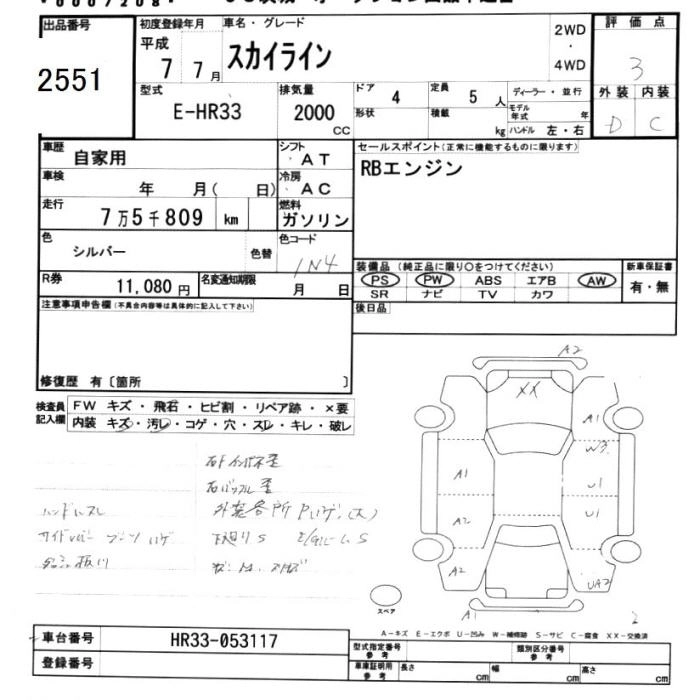 出品番号
2551
初度登録年月
平成
7 7月
車名・グレード
スカイライン
2WD
・
4WD
評価点
3
外装 内装
D C
型式
E-HR33
排気量
2000
CC
ドア
4
定員
5 人
形状
積載
kg
ディーラー・並行
モデル年式 年
ハンドル 左・右
車歴
自家用
シフト
AT
車検
年 月( 日)
冷房
AC
走行
7万5千809 km
燃料
ガソリン
色
シルバー
色替
色コード
1N4
R券
11,080円
名変通知期限
月 日
セールスポイント(正常に機能するものに限ります)
RBエンジン
装備品 (純正品に限り〇をつけてください)
PS PW ABS エアB AW
SR ナビ TV カワ
新車保証書
有・無
後日品
注意事項申告欄(不具合内容等は具体的に記入して下さい)
修復歴 有〔箇所 〕
検査員
記入欄
FW キズ・飛石・ヒビ割・リペア跡・×要
内装 キズ・汚レ・コゲ・穴・スレ・キレ・破レ
ハンドルスレ
外装各所
下廻りS
A2
XX
A1
W3
A1
U1
U1
A2
A2
UA2
A1
2
スペア
A-キズ E-エクボ U-凹み W-補修跡 S-サビ C-腐食 XX-交換済
車台番号
HR33-053117
登録番号
型式指定番号
参考
類別区分番号
参考
車庫証明用
参考
長さ cm
幅 cm
高さ cm